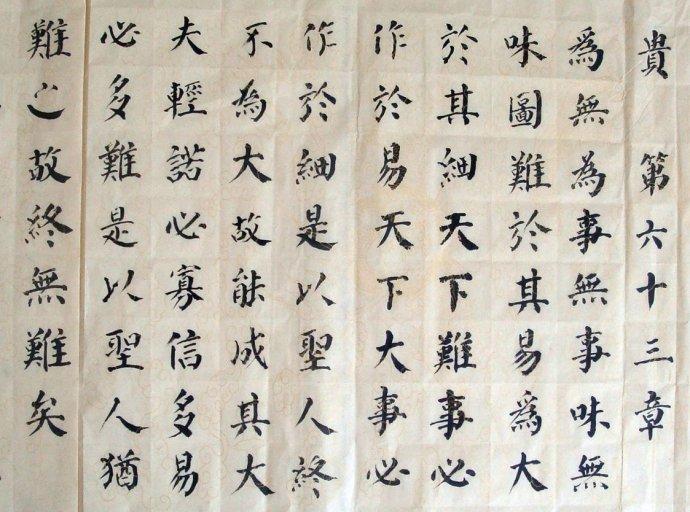 貴 第六十三章
為無為事無事味無
味圖難於其易為大
於其細天下難事必
作於易天下大事必
作於細是以聖人終
不為大故能成其大
夫輕諾必寡信多易
必多難是以聖人猶
難之故終無難矣